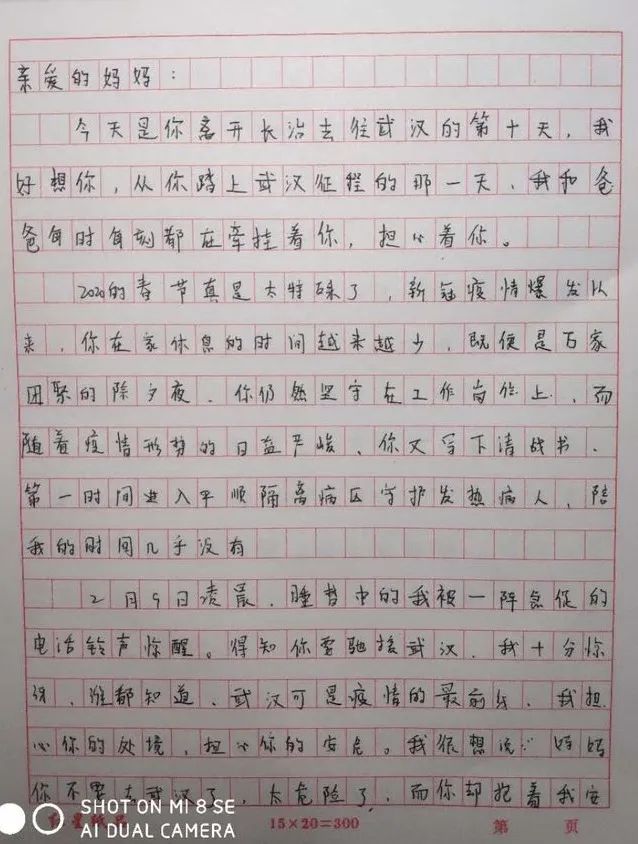 亲爱的妈妈：
今天是你离开长治去往武汉的第十天，我
好想你，从你踏上武汉征程的那一天、我和爸
爸每时每刻都在牵挂着你，担心着你。
2020的春节真是太特碌了，新冠疫情爆发以
来，你在家休息的时间越来越少，既便是万家
团聚的除夕夜、你仍然坚守在工作岗位上，而
随着疫情形势的日益严峻、你又写下请战书、
第一时间进入平顺隔离病区守护发热病人，陪
我的时间几乎没有
2月9日凌晨，睡梦中的我被一阵急促的
电话铃声惊醒。得知你要驰援武汉，我十分惊
讶，谁都知道、武汉可是疫情的最前线、我担
心你的处境，担心你的安危。我很想说：妈妈
你不要去武汉了，太危险了，而你却抱着我安
15×20=300
第 页
SHOT ON MI 8 SE
AI DUAL CAMERA